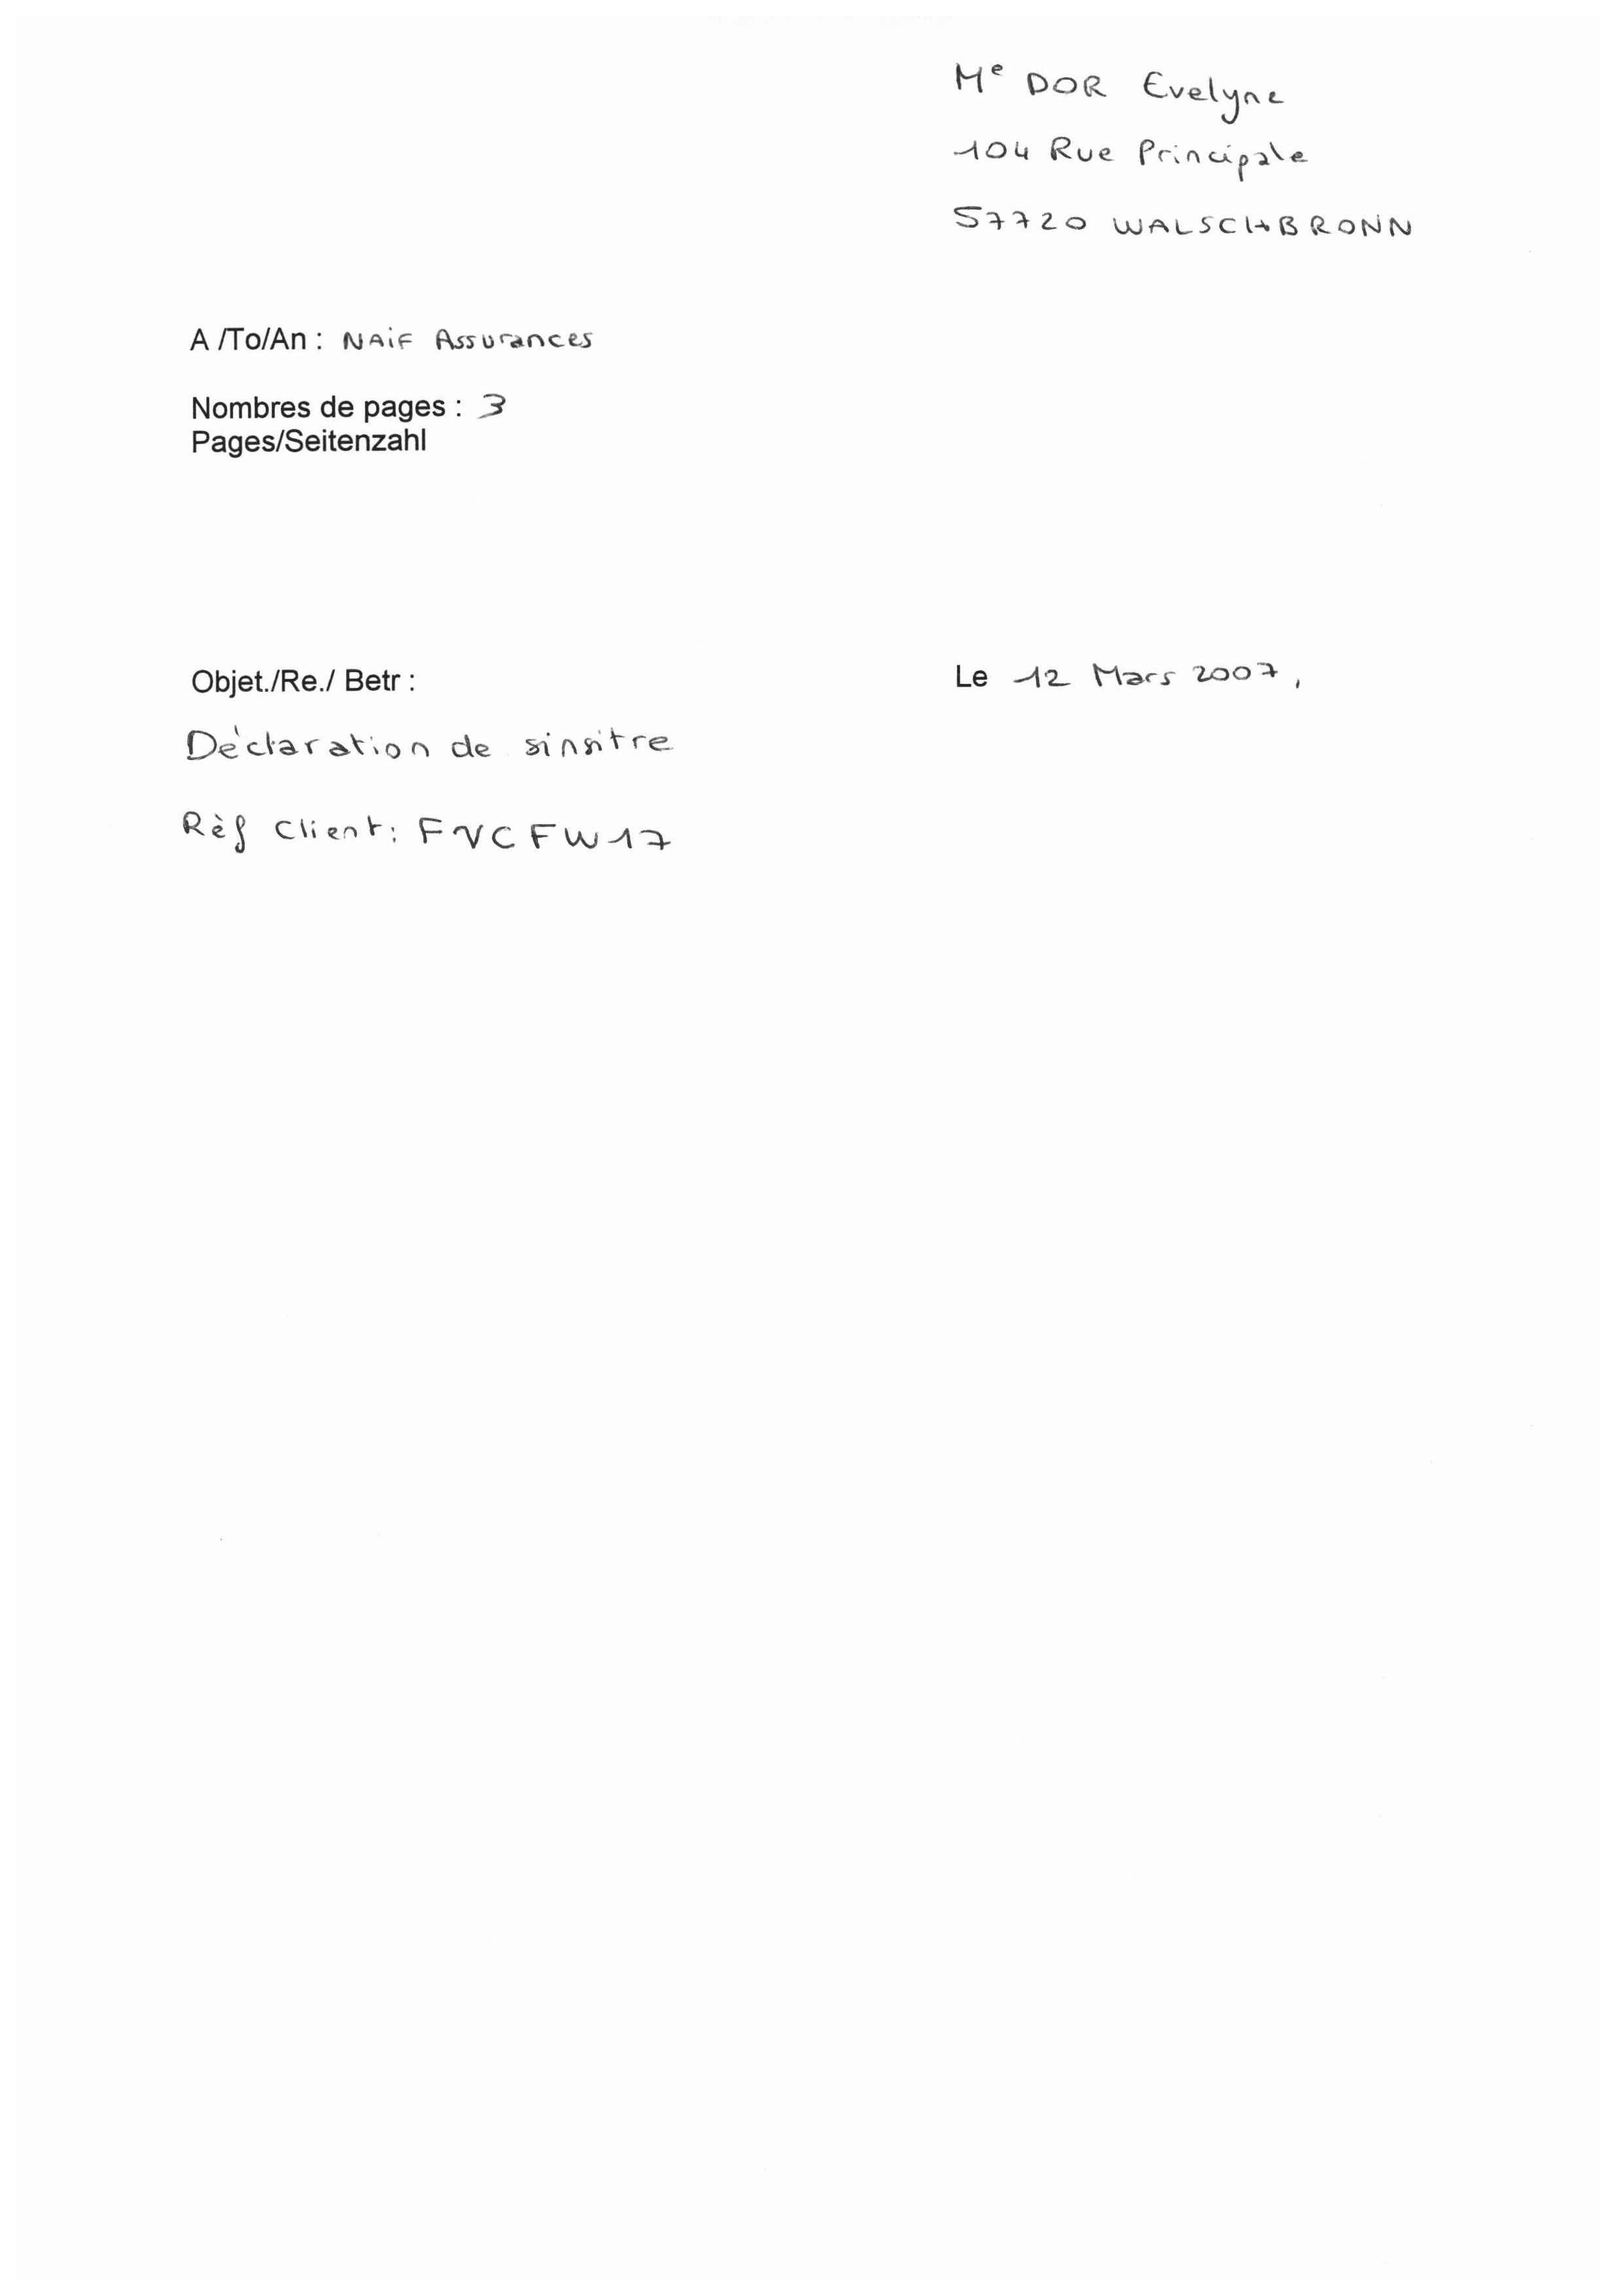 Me DOR Evelyne
104 Rue Principale
57720 WALSCHBRONN
A /To/An : NAiF Assurances
Nombres de pages : 3
Pages/Seitenzahl
Objet./Re./ Betr :
Le 12 Mars 2007,
Déclaration de sinsitre
Rèf Client: FVCFW17